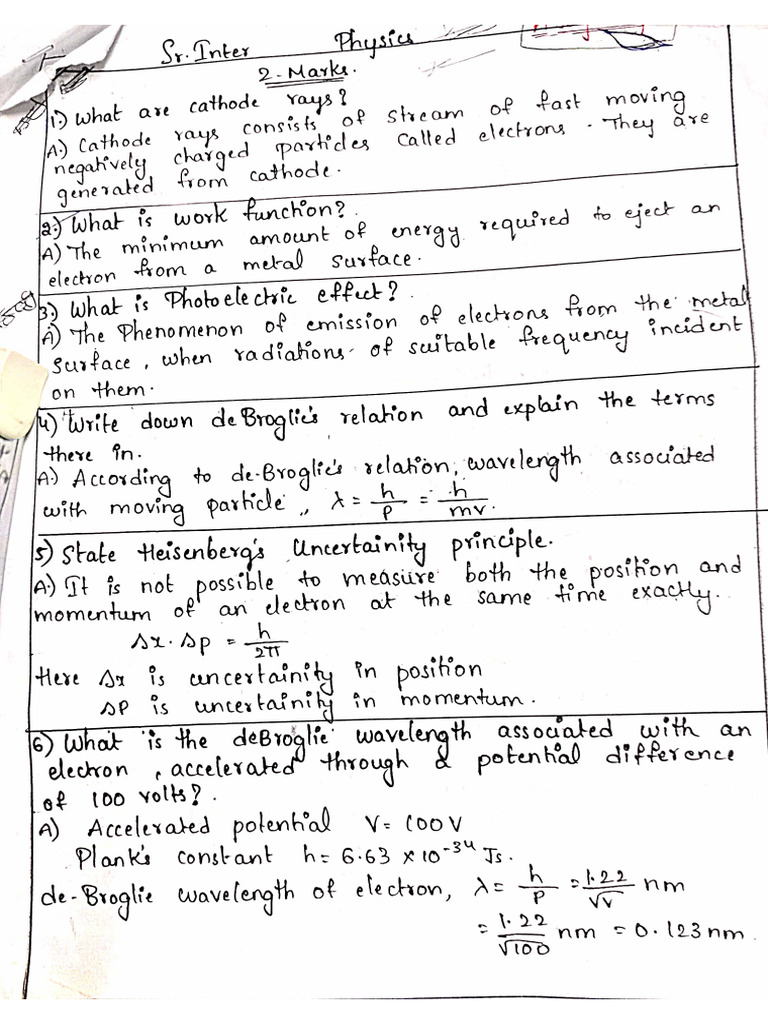 Sr. Inter Physics
2-Marks.
1.) What are cathode rays?
A.) Cathode rays consists of stream of fast moving
negatively charged particles called electrons. They are
generated from cathode.
2.) What is work function?
A) The minimum amount of energy required to eject an
electron from a metal surface.
3.) What is Photoelectric effect?
A) The Phenomenon of emission of electrons from the metal
surface, when radiations of suitable frequency incident
on them.
4) Write down deBroglie's relation and explain the terms
there in.
A.) According to de-Broglie's relation, wavelength associated
with moving particle, λ = h/p = h/mv.
5) State Heisenberg's Uncertainity principle.
A.) It is not possible to measure both the position and
momentum of an electron at the same time exactly.
Δx. Δp = h/2π
Here Δx is uncertainity in position
ΔP is uncertainity in momentum.
6) What is the deBroglie wavelength associated with an
electron, accelerated through a potential difference
of 100 volts?.
A) Accelerated potential V = 100V
Plank's constant h = 6.63 × 10⁻³⁴ Js.
de-Broglie wavelength of electron, λ = h/p = 1.22/√V nm
= 1.22/√100 nm = 0.123 nm